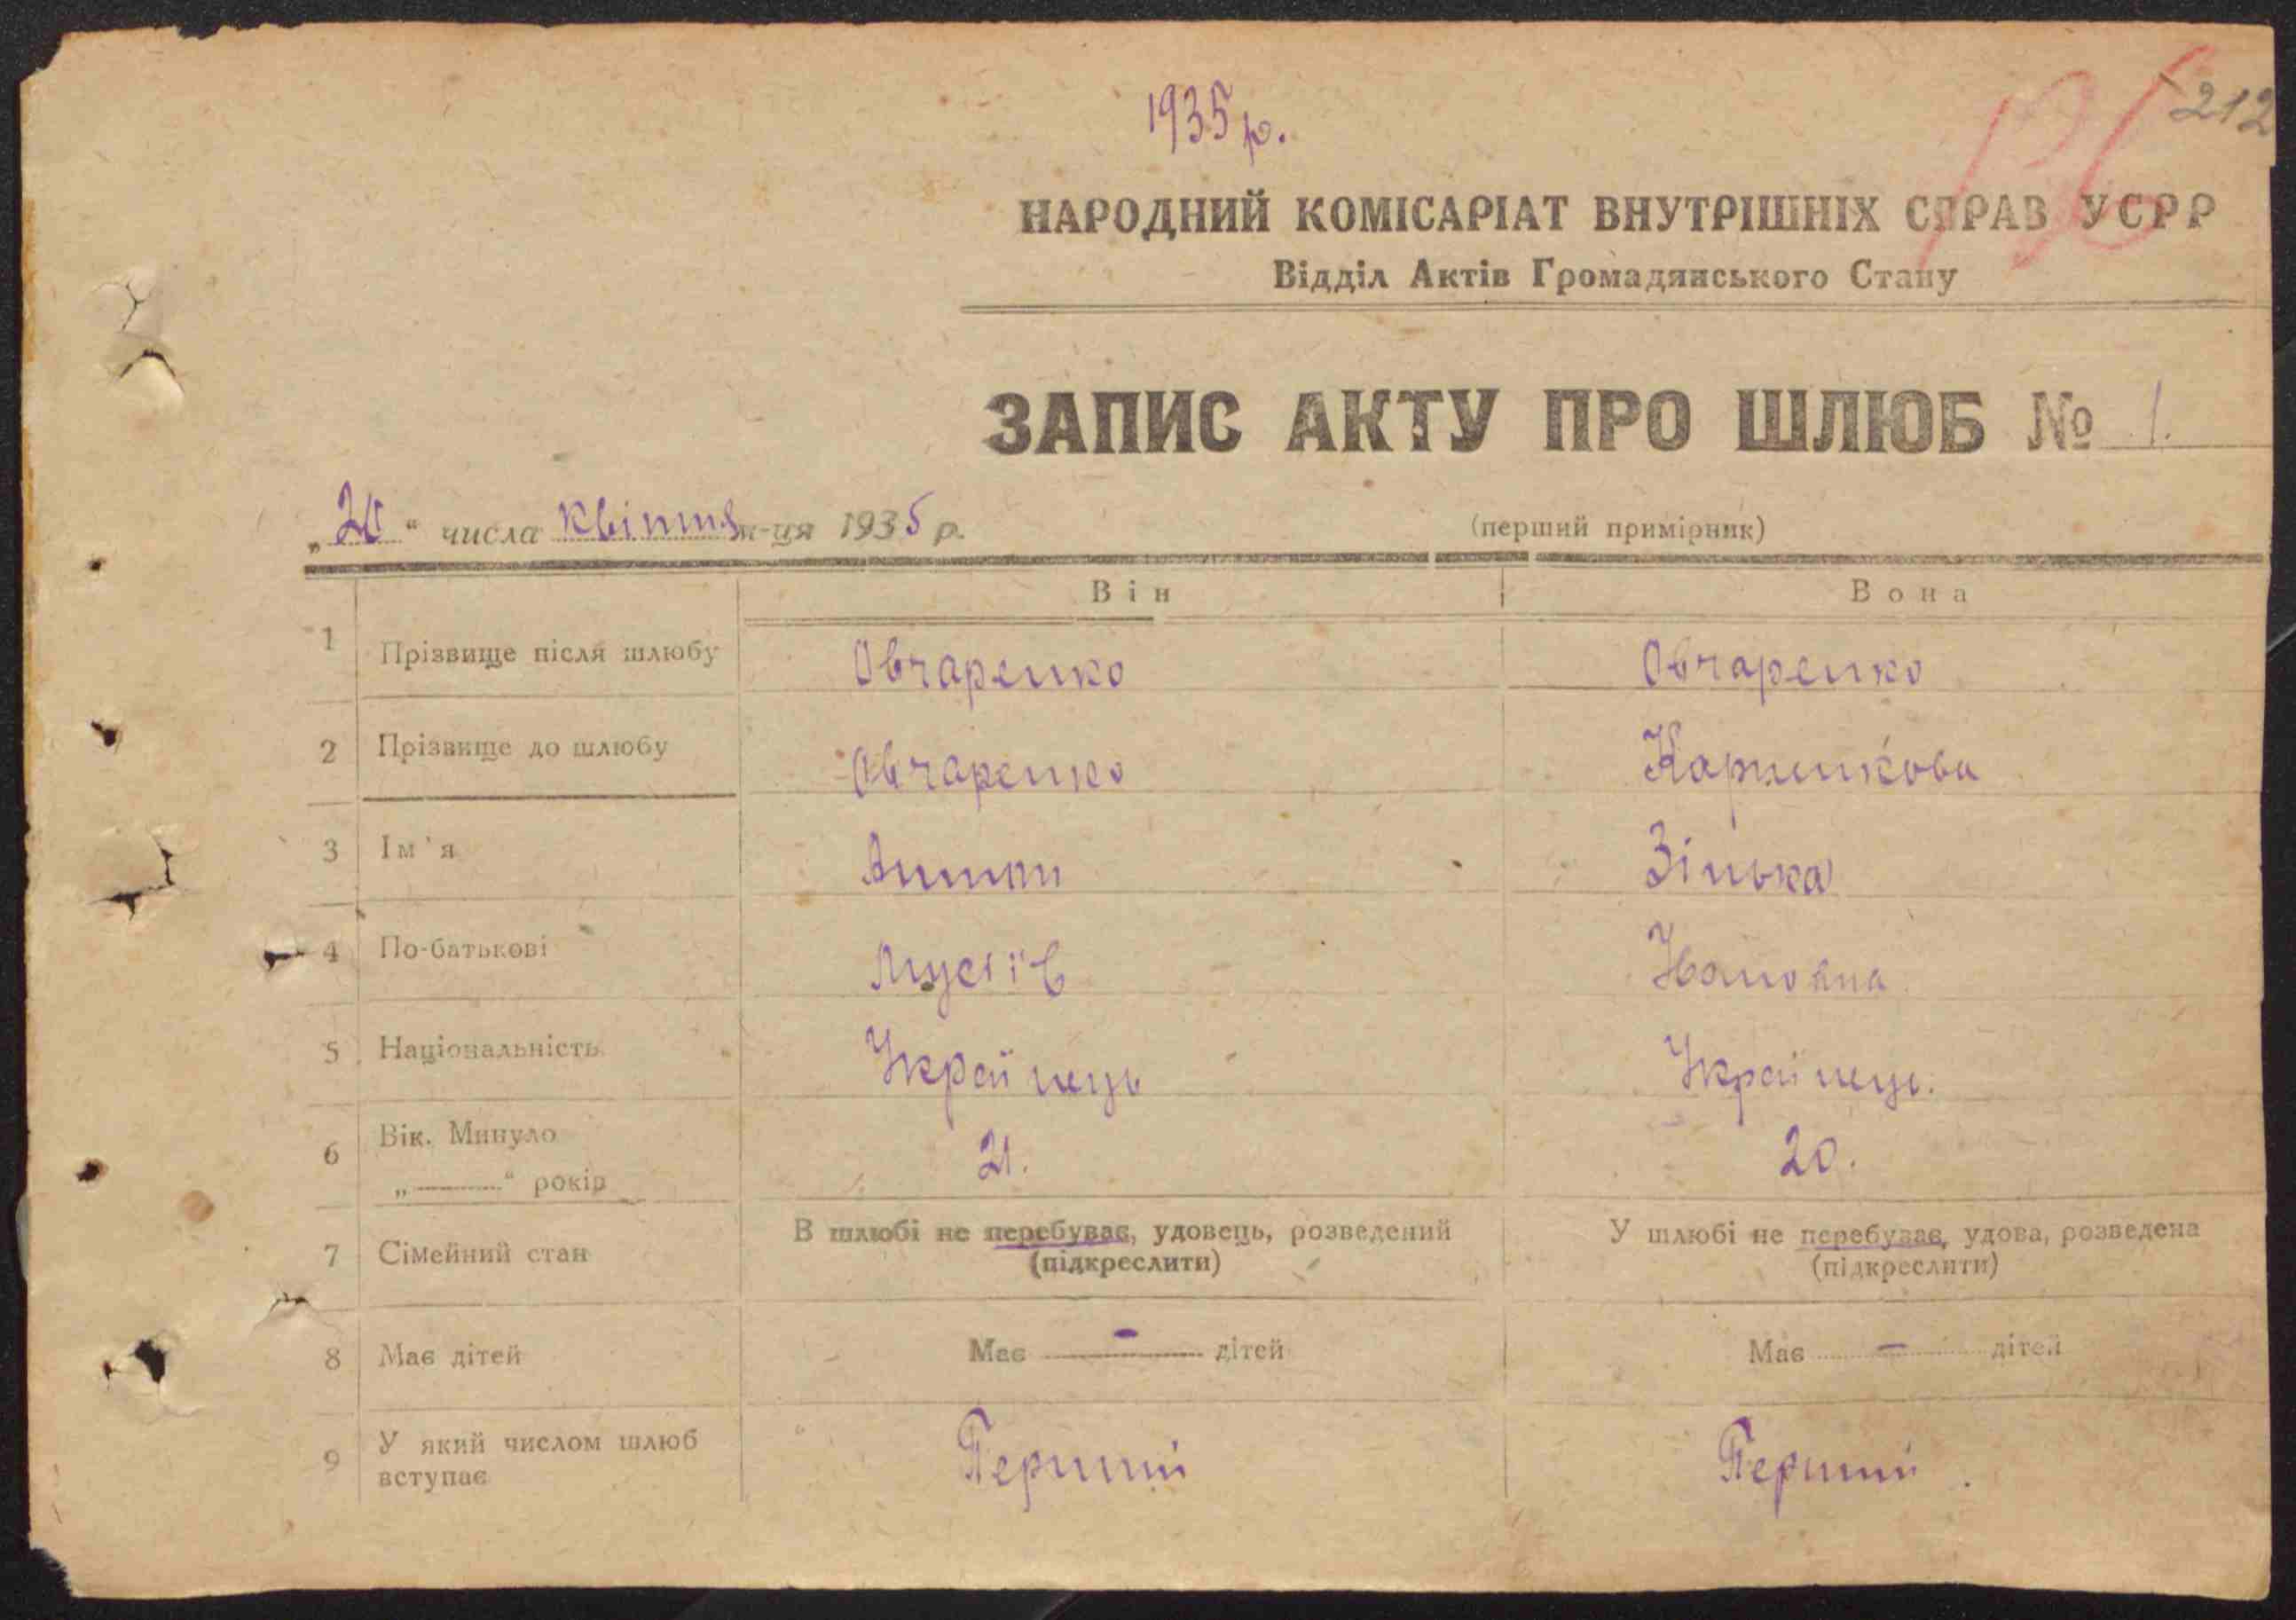 1935 р.
212
НАРОДНИЙ КОМІСАРІАТ ВНУТРІШНІХ СПРАВ УСРР
Відділ Актів Громадянського Стану
ЗАПИС АКТУ ПРО ШЛЮБ № 1.
„ “ числа квітня м-ця 1935 р.
(перший примірник)
Він Вона
1 Прізвище після шлюбу Овчаренко Овчаренко
2 Прізвище до шлюбу Овчаренко
3 Ім'я Антон Зінька
4 По-батькові Мусіїв
5 Національність Українець Українець.
6 Вік. Минуло 21. 20.
„—“ років
7 Сімейний стан В шлюбі не перебуває, удовець, розведений У шлюбі не перебуває, удова, розведена
(підкреслити) (підкреслити)
8 Має дітей Має — дітей Має — дітей
9 У який числом шлюб Перший Перший.
вступає